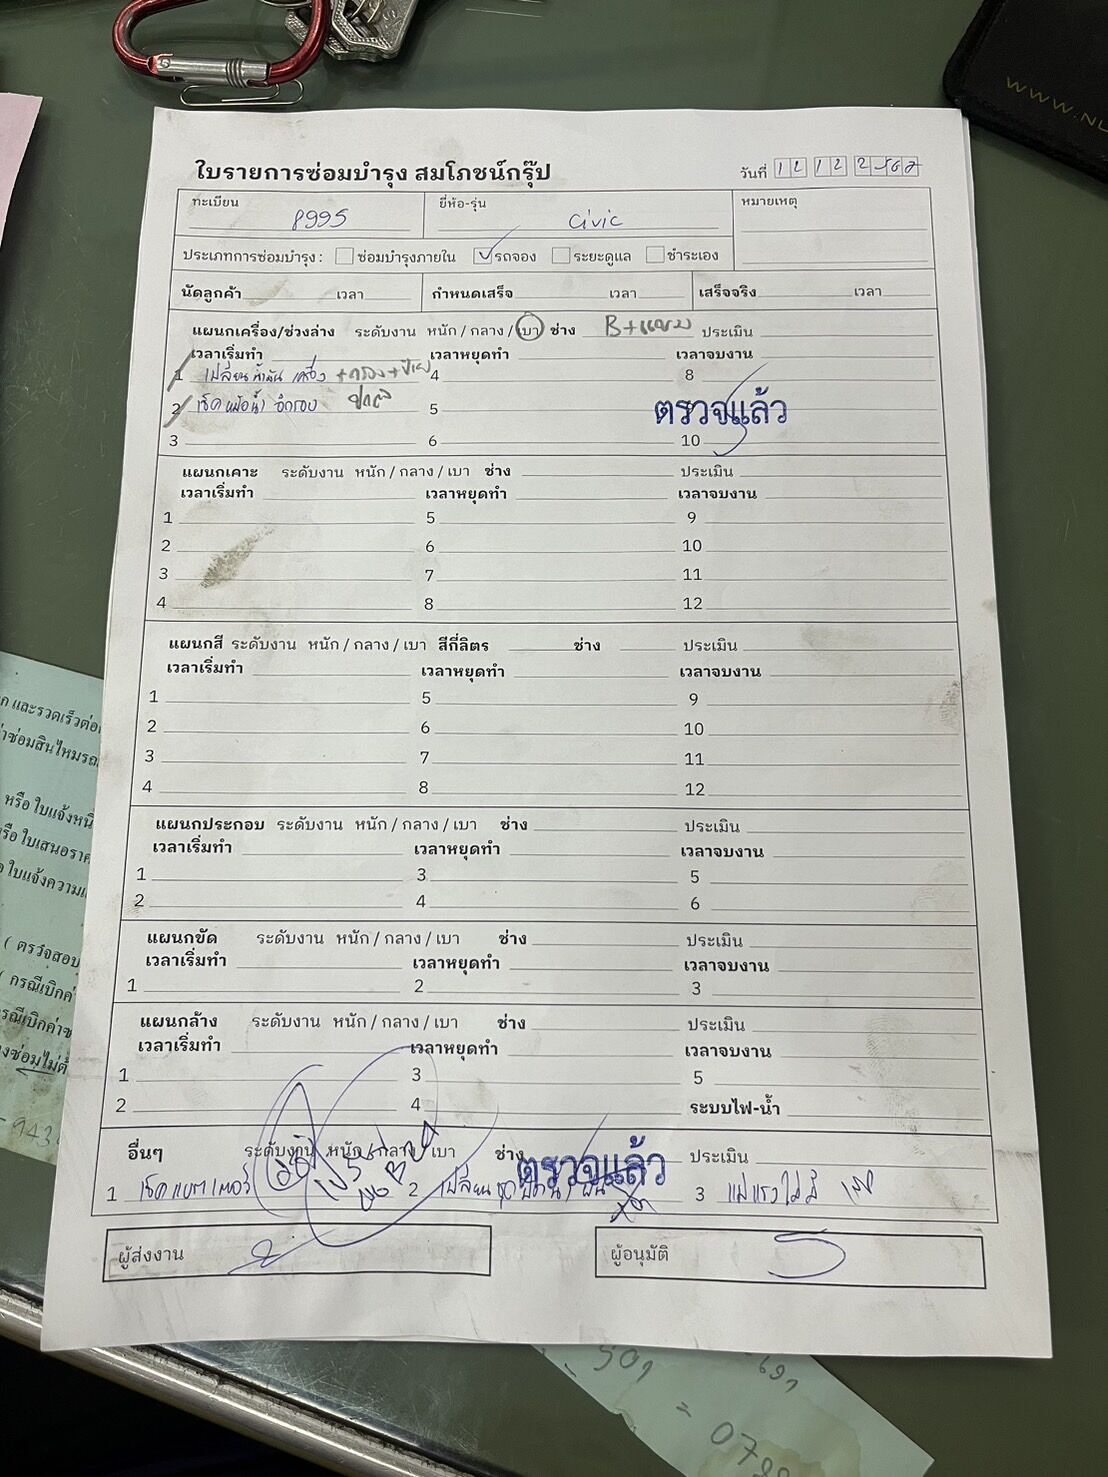 WWW.NL
ใบรายการซ่อมบำรุง สมโภชน์กรุ๊ป
วันที่ 12 12 2567
ทะเบียน 8995 ยี่ห้อ-รุ่น Civic หมายเหตุ
ประเภทการซ่อมบำรุง : ซ่อมบำรุงภายใน ✓ รถจอง ระยะดูแล ชำระเอง
นัดลูกค้า เวลา กำหนดเสร็จ เวลา เสร็จจริง เวลา
แผนกเครื่อง/ช่วงล่าง ระดับงาน หนัก / กลาง / เบา ช่าง B+แขม ประเมิน
เวลาเริ่มทำ เวลาหยุดทำ เวลาจบงาน
1 เปลี่ยนน้ำมันเครื่อง +กรอง+ป้าย 4 8
2 เช็คหม้อน้ำ อีกรอบ ปกติ 5 ตรวจแล้ว
3 6 10
แผนกเคาะ ระดับงาน หนัก / กลาง / เบา ช่าง ประเมิน
เวลาเริ่มทำ เวลาหยุดทำ เวลาจบงาน
1 5 9
2 6 10
3 7 11
4 8 12
แผนกสี ระดับงาน หนัก / กลาง / เบา สีกี่ลิตร ช่าง ประเมิน
เวลาเริ่มทำ เวลาหยุดทำ เวลาจบงาน
1 5 9
2 6 10
3 7 11
4 8 12
แผนกประกอบ ระดับงาน หนัก / กลาง / เบา ช่าง ประเมิน
เวลาเริ่มทำ เวลาหยุดทำ เวลาจบงาน
1 3 5
2 4 6
แผนกขัด ระดับงาน หนัก / กลาง / เบา ช่าง ประเมิน
เวลาเริ่มทำ เวลาหยุดทำ เวลาจบงาน
1 2 3
แผนกล้าง ระดับงาน หนัก / กลาง / เบา ช่าง ประเมิน
เวลาเริ่มทำ เวลาหยุดทำ เวลาจบงาน
1 3 5
2 4 ระบบไฟ-น้ำ
อื่นๆ ระดับงาน หนัก / กลาง / เบา ช่าง ตรวจแล้ว ประเมิน
1 เช็คแบตเตอรี่ 2 เปลี่ยน 3 แม่แรงไม่มี
ผู้ส่งงาน ผู้อนุมัติ
และรวดเร็วต่อ
หรือ ใบแจ้งหนี้
ใบเสนอราคา
ใบแจ้งความ
( ตรวจสอบ
( กรณีเบิกค่า
943
509
691